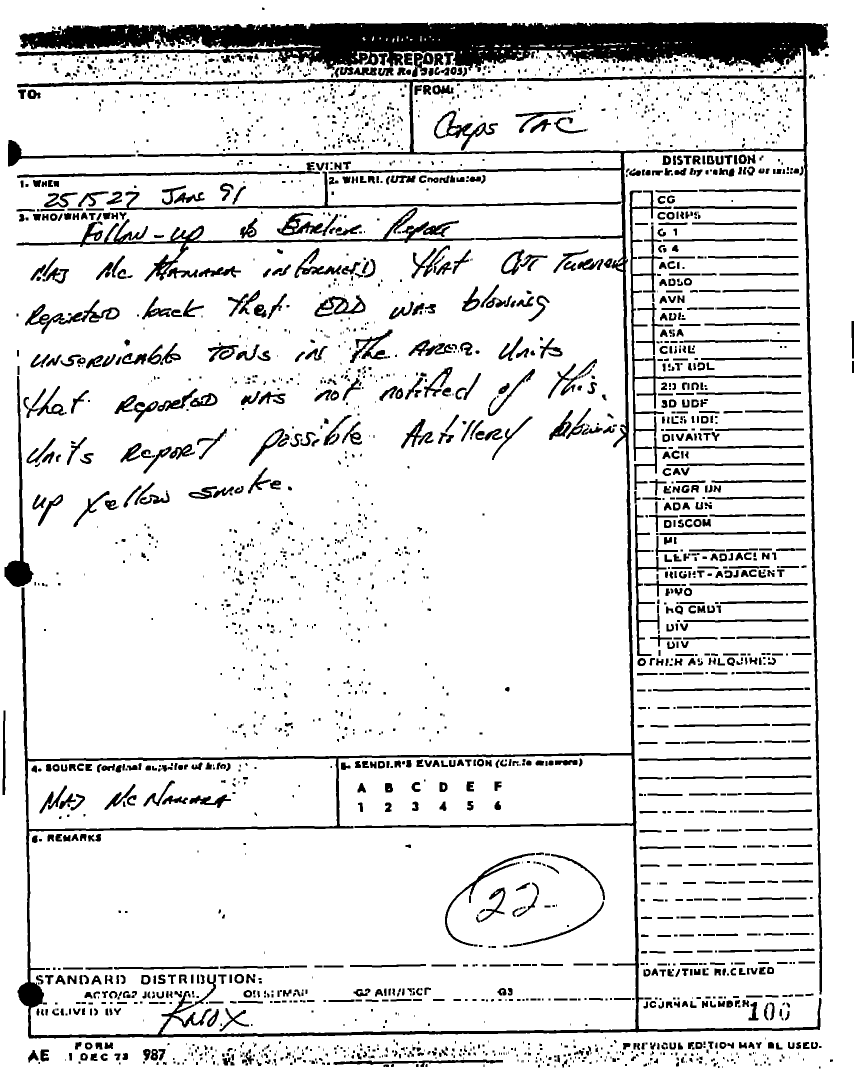 SPOT REPORT
(USAREUR Reg 380-205)
TO:
FROM:
Corps TAC
EVENT
DISTRIBUTION
(determined by using HQ or units)
1. WHEN
2. WHERE (UTM Coordinates)
251527 JAN 91
3. WHO/WHAT/WHY
Follow-up to Earlier Report
MAJ McNamara informed that CPT Turnor
Reported back that EOD was blowing
unservicable TOWs in the AREA. Units
that reported was not notified of this.
Units Report possible Artillery blowing
up yellow smoke.
CG
CORPS
G 1
G 4
ADSO
AVN
ADE
ASA
1ST BDE
2D BDE
3D BDE
RES BDE
DIVARTY
ACR
CAV
ENGR BN
ADA BN
DISCOM
MI
LEFT-ADJACENT
RIGHT-ADJACENT
PMO
HQ CMDT
DIV
DIV
OTHER AS REQUIRED
4. SOURCE (original supplier of info)
5. SENDER'S EVALUATION (Circle answers)
MAJ McNamara
A B C D E F
1 2 3 4 5 6
6. REMARKS
22
STANDARD DISTRIBUTION:
ACTO/G2 JOURNAL DSI SITMAP G2 AIR/FSCF G3
RECEIVED BY
Knox
DATE/TIME RECEIVED
JOURNAL NUMBER 100
AE FORM 1 DEC 73 987
PREVIOUS EDITION MAY BE USED.